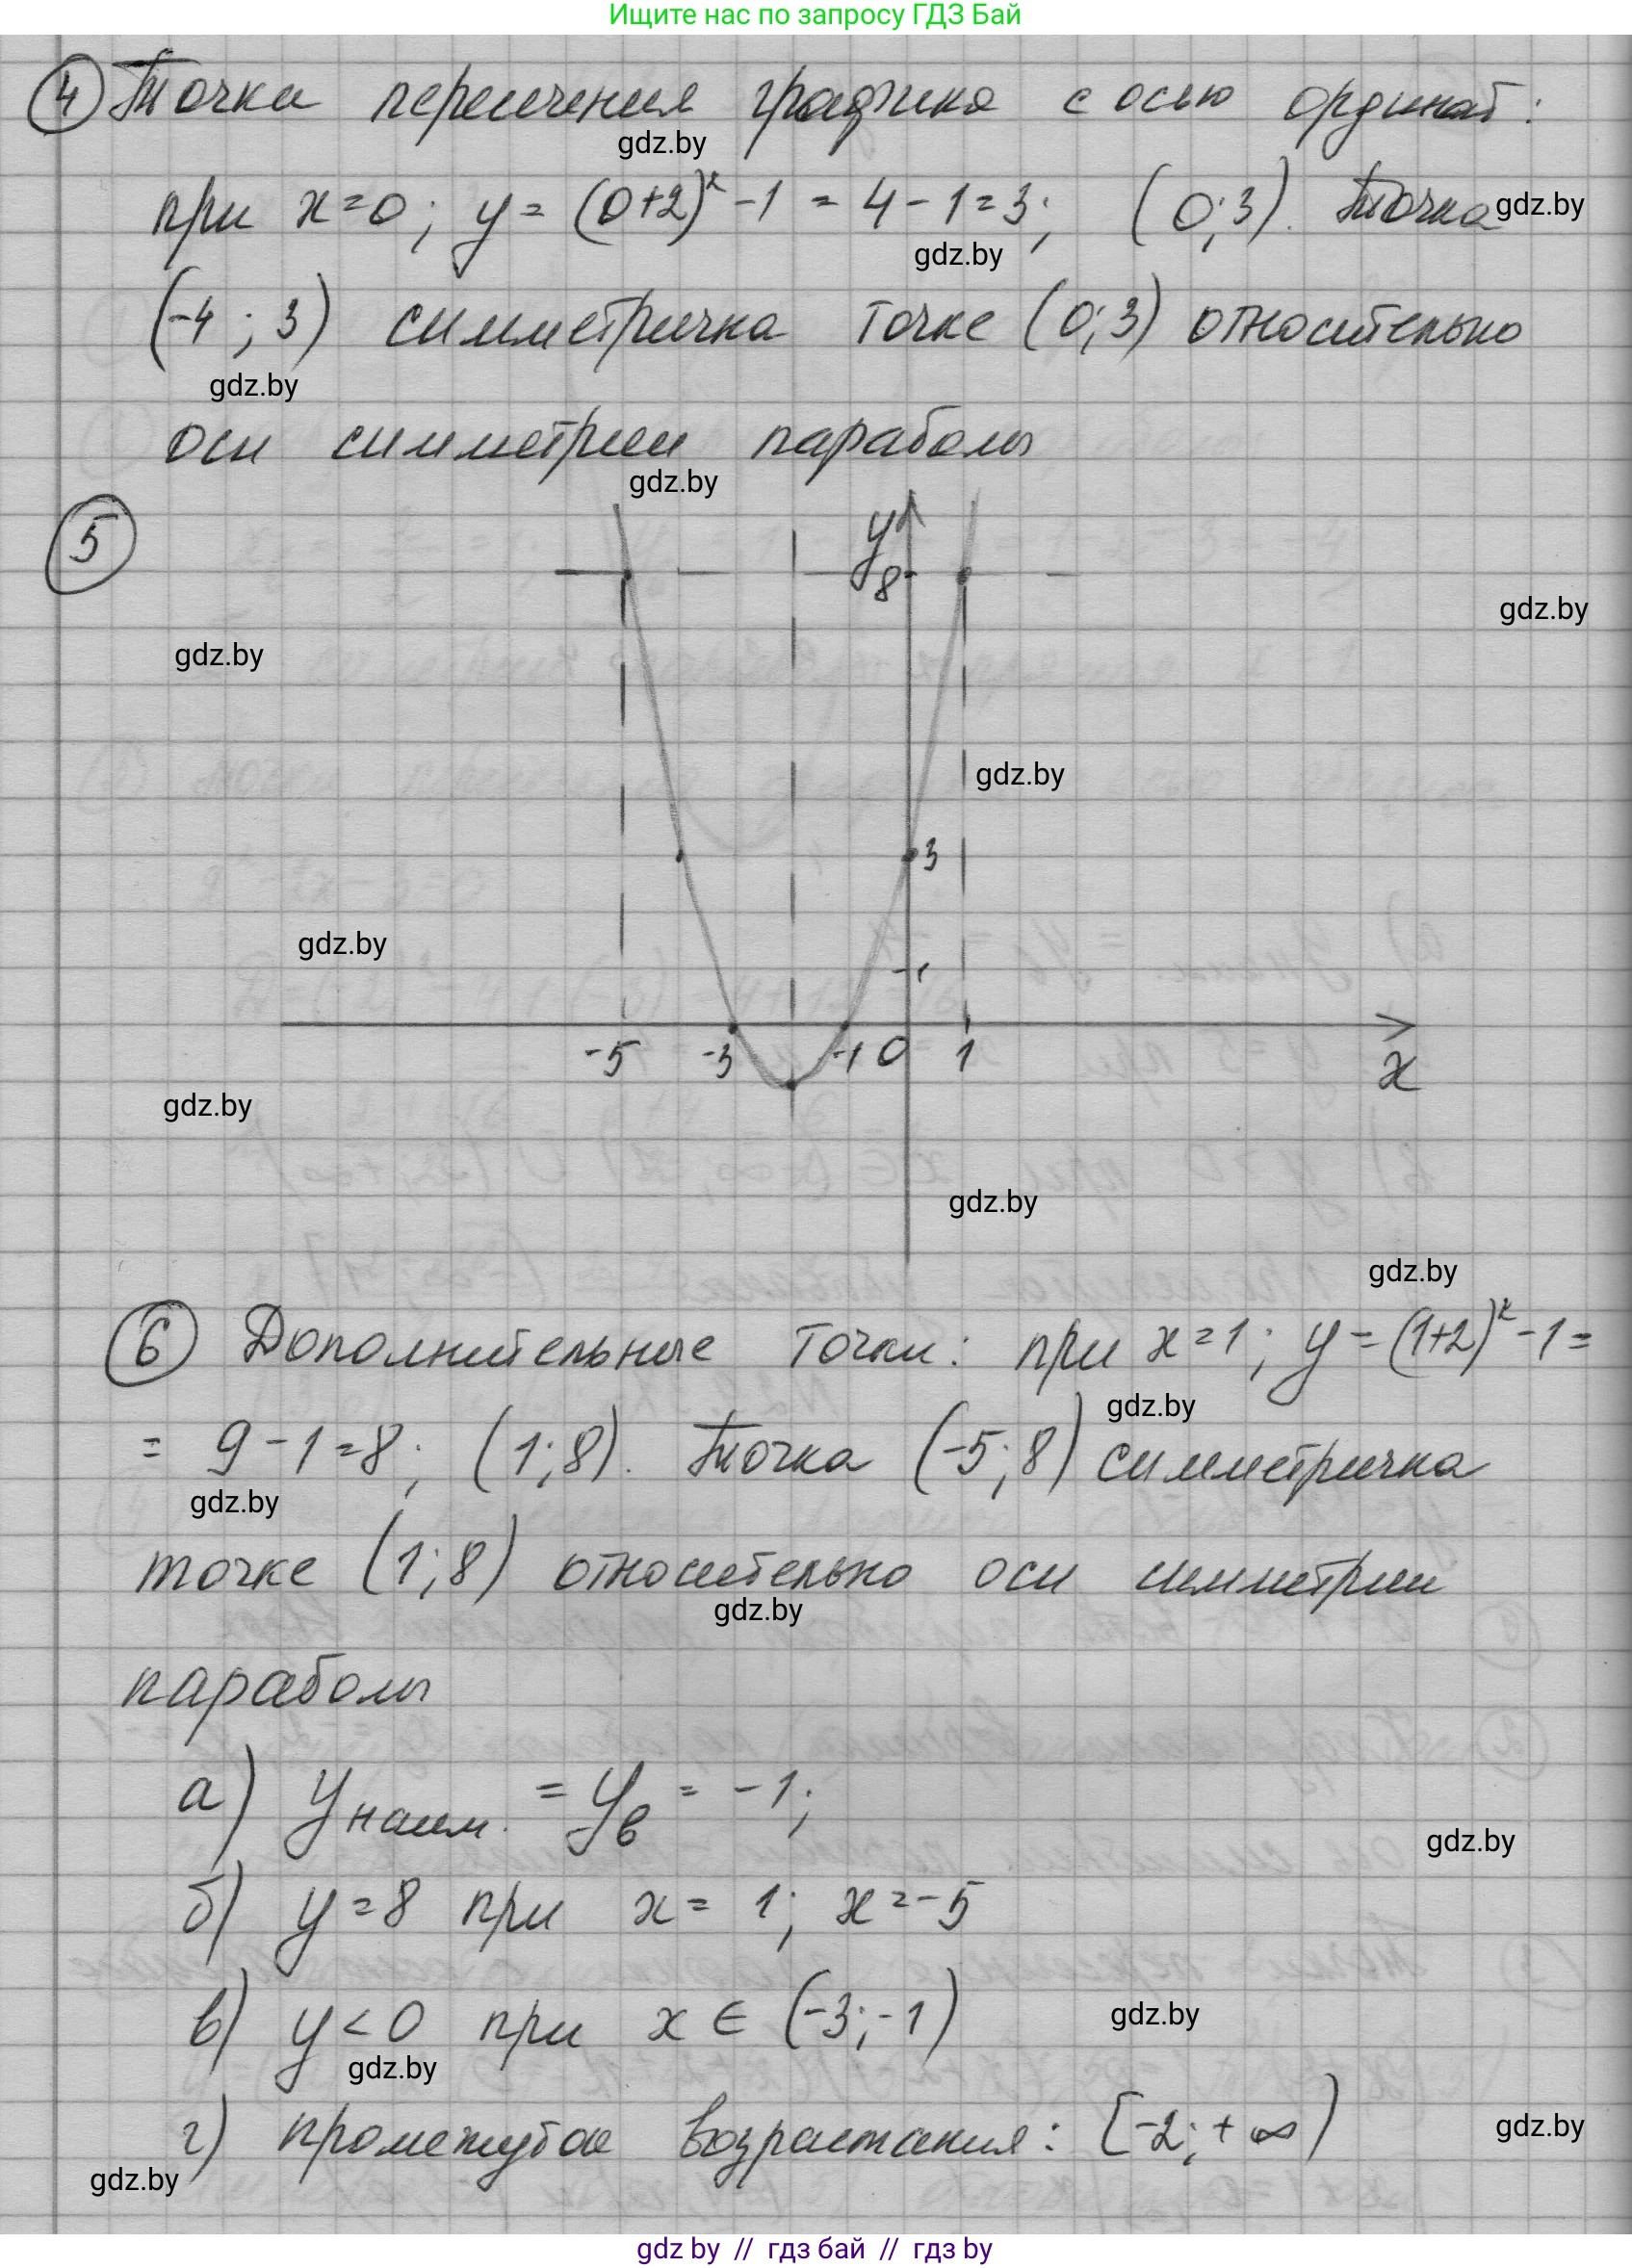 Ищите нас по запросу ГДЗ Бай
④ Точки пересечения графика с осью ординат:
gdz.by
при x=0; y= (0+2)² -1 = 4-1=3; (0;3). Точка gdz.by
gdz.by
(-4; 3) симметрична точке (0;3) относительно
gdz.by
оси симметрии параболы
gdz.by
⑤
y
8
gdz.by
gdz.by
gdz.by
3
gdz.by
1
-5 -3 -1 0 1
x
gdz.by
gdz.by
gdz.by
⑥ Дополнительные точки: при x=1; y=(1+2)²-1=
gdz.by
= 9-1=8; (1;8). Точка (-5;8) симметрична
gdz.by
точке (1;8) относительно оси симметрии
gdz.by
параболы
а) yнаим. = yв = -1;
gdz.by
б) y=8 при x= 1; x=-5
в) y<0 при x ∈ (-3;-1)
gdz.by
gdz.by
г) промежуток возрастания: [-2;+∞)
gdz.by
gdz.by
gdz by // гдз бай // гдз by